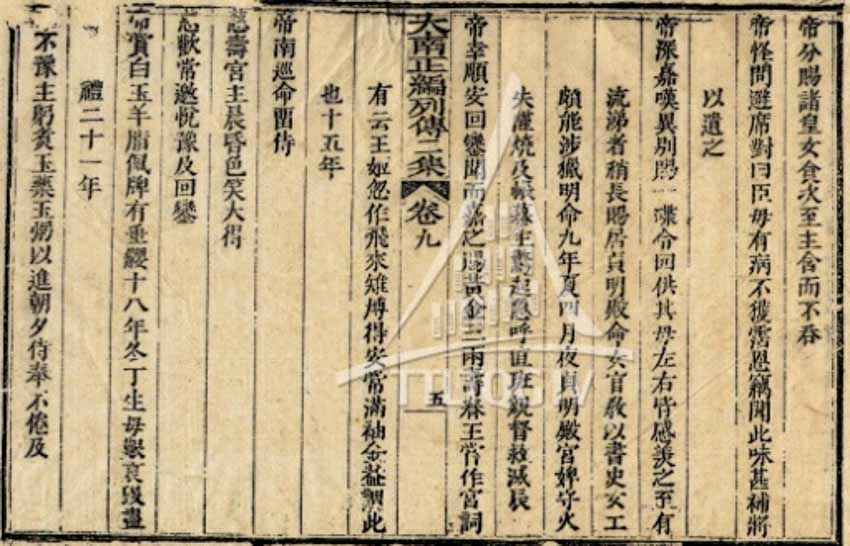 帝分賜諸皇女食次至主含而不吞
帝怪問避席對曰臣母有病不獲霑恩竊聞此味甚補將
以遺之
帝深嘉嘆異別賜一碟令回供其母左右皆感羨之至有
流涕者稍長賜居貞明殿命女官敎以書史女工
頗能涉獵明命九年夏四月夜貞明殿宮婢守火
失
燒及帳幕主驚起急呼直班親督救滅辰
帝幸順安回鑾聞而嘉之賜黃金三兩壽春王嘗作宮詞
大南正編列傳二集 卷九 五
有云王姬忽作飛來雉博得安常滿袖金蓋謂此
也十五年
帝南巡命留侍
慈壽宮主晨昏色笑大得
慈歡常邀悅豫及回鑾
帝賞白玉羊脂佩牌有垂纓十八年冬丁生母喪哀毀盡
禮二十一年
不豫主躬煮玉藥玉粥以進朝夕侍奉不倦及
TTLTQG IV